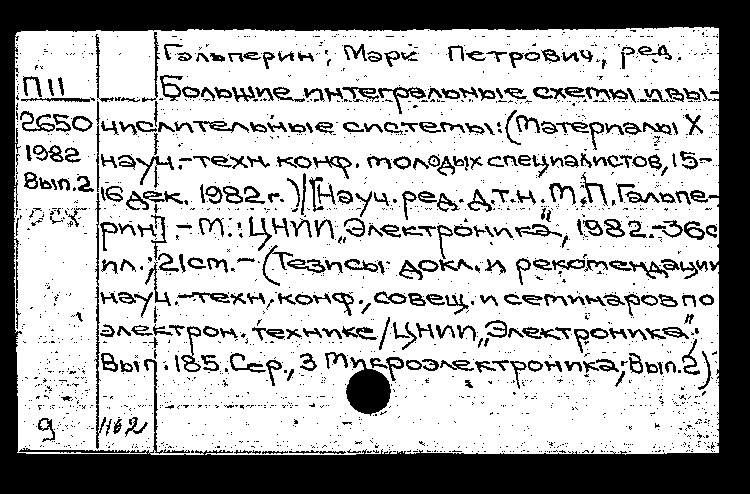 Гальперин, Марк Петрович, ред.
П11 Большие интегральные схемы и вы-
2650 числительные системы: (Материалы X
1982 науч.-техн. конф. молодых специалистов, 15-
Вып.2 16 дек. 1982 г.) / [Науч. ред. д.т.н. М.П. Гальпе-
осх рин]. - М.: ЦНИИ „Электроника“, 1982. - 36с
ил.; 21 cm. - (Тезисы докл. и рекомендации
науч.-техн. конф., совещ. и семинаров по
электрон. технике / ЦНИИ „Электроника“;
Вып. 185. Сер., 3 Микроэлектроника; Вып.2)
9 1162